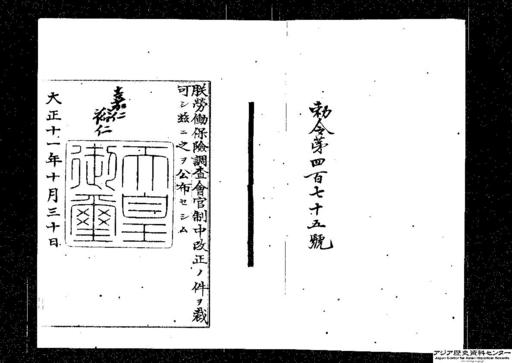 勅令第四百七十五號
朕勞働保險調査會官制中改正ノ件ヲ裁
可シ茲ニ之ヲ公布セシム
嘉仁
裕仁
天皇
御璽
大正十一年十月三十日
アジア歴史資料センター
Japan Center for Asian Historical Records